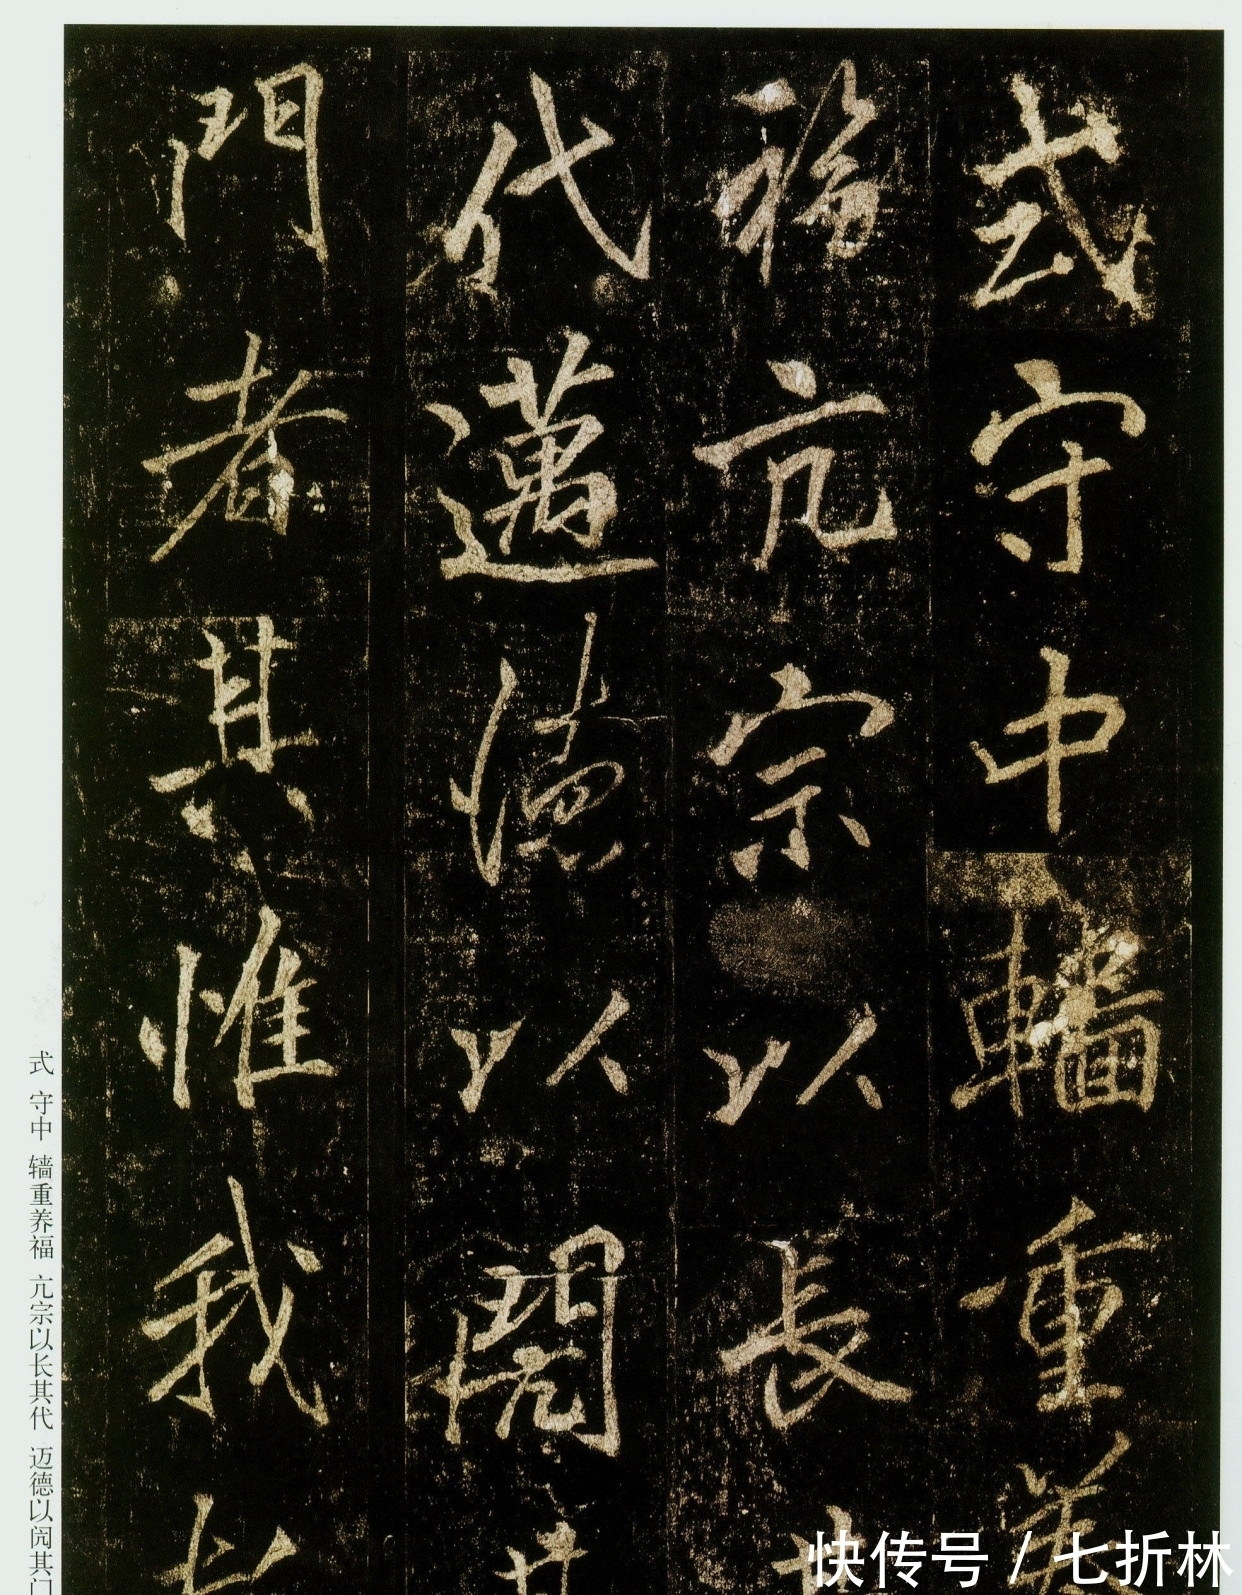 式守中轖重養
福亢宗以長其
代邁德以閌其
門者其惟我
式 守中 轖重养福 亢宗以长其代 迈德以闶其门
快传号 / 七折林